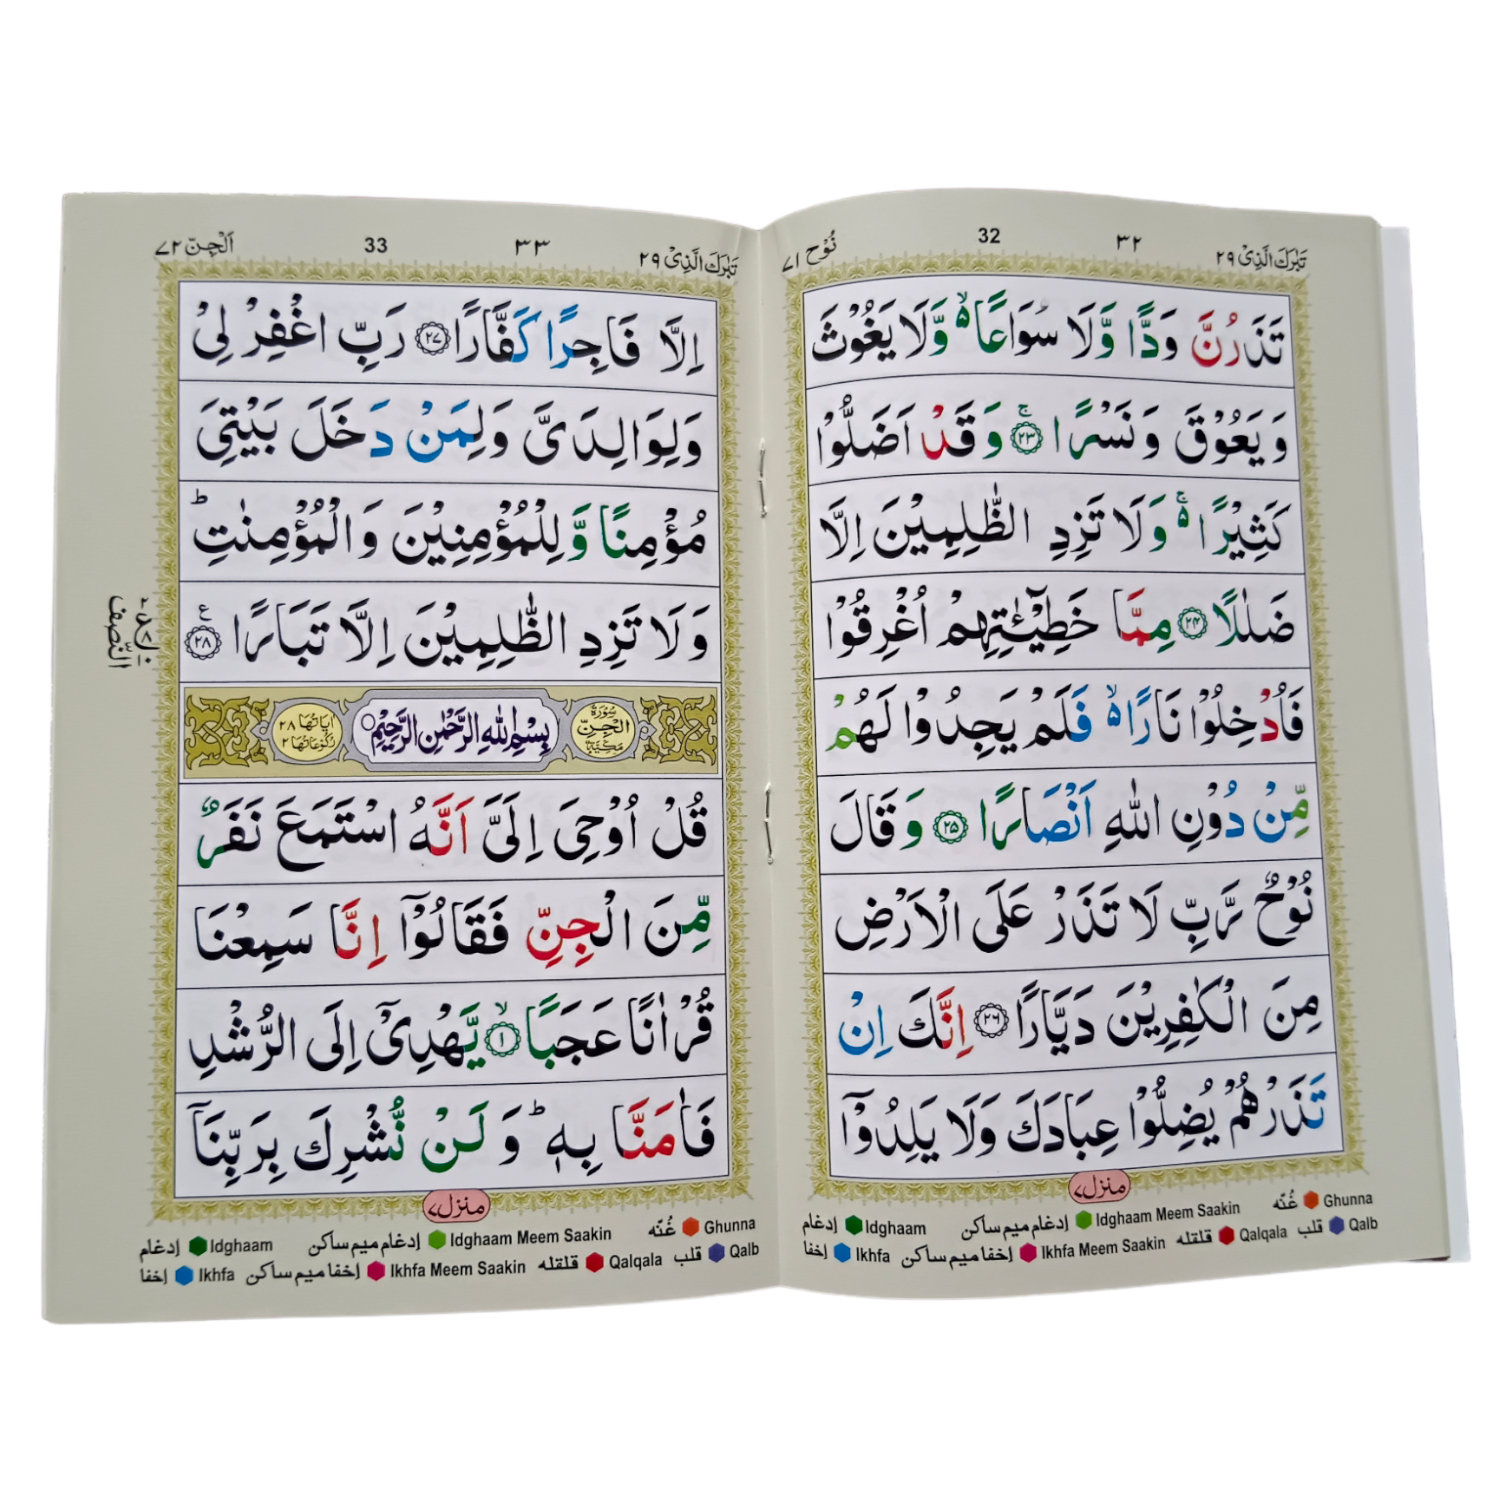 تَبٰرَكَ الَّذِیْ ٢٩
٣٢
32
نُوْح ٧١
تَذَرُنَّ وَدًّا وَّلَا سُوَاعًا ۙ۬ وَّلَا یَغُوْثَ
وَ یَعُوْقَ وَ نَسْرًا ۚ﴿٢٣﴾ وَ قَدْ اَضَلُّوْا
كَثِیْرًا ۚ۬ وَ لَا تَزِدِ الظّٰلِمِیْنَ اِلَّا
ضَلٰلًا ﴿٢٤﴾ مِمَّا خَطِیْٓـٰٔتِهِمْ اُغْرِقُوْا
فَاُدْخِلُوْا نَارًا ۙ۬ فَلَمْ یَجِدُوْا لَهُمْ
مِّنْ دُوْنِ اللّٰهِ اَنْصَارًا ﴿٢٥﴾ وَ قَالَ
نُوْحٌ رَّبِّ لَا تَذَرْ عَلَی الْاَرْضِ
مِنَ الْكٰفِرِیْنَ دَیَّارًا ﴿٢٦﴾ اِنَّكَ اِنْ
تَذَرْهُمْ یُضِلُّوْا عِبَادَكَ وَلَا یَلِدُوْۤا
منزل ٧
Ghunna غُنّه Idghaam Meem Saakin ادغام میم ساکن Idghaam إدغام
Qalb قلب Qalqala قلقله Ikhfa Meem Saakin إخفا میم ساکن Ikhfa إخفا
تَبٰرَكَ الَّذِیْ ٢٩
٣٣
33
اَلْجِنّ ٧٢
اِلَّا فَاجِرًا كَفَّارًا ﴿٢٧﴾ رَبِّ اغْفِرْ لِیْ
وَلِوَالِدَیَّ وَلِمَنْ دَخَلَ بَیْتِیَ
مُؤْمِنًا وَّ لِلْمُؤْمِنِیْنَ وَ الْمُؤْمِنٰتِ ؕ
وَ لَا تَزِدِ الظّٰلِمِیْنَ اِلَّا تَبَارًا ﴿٢٨﴾ ع
النّصف
سُوْرَةُ الْجِنِّ مَكِّیَّةٌ
بِسْمِ اللّٰهِ الرَّحْمٰنِ الرَّحِیْمِ
اٰیَاتُهَا ٢٨ رُكُوْعَاتُهَا ٢
قُلْ اُوْحِیَ اِلَیَّ اَنَّهُ اسْتَمَعَ نَفَرٌ
مِّنَ الْجِنِّ فَقَالُوْۤا اِنَّا سَمِعْنَا
قُرْاٰنًا عَجَبًا ۙ﴿١﴾ یَّهْدِیْۤ اِلَی الرُّشْدِ
فَاٰمَنَّا بِهٖ ؕ وَ لَنْ نُّشْرِكَ بِرَبِّنَاۤ
منزل ٧
Ghunna غُنّه Idghaam Meem Saakin إدغام میم ساکن Idghaam إدغام
Qalb قلب Qalqala قلقله Ikhfa Meem Saakin إخفا میم ساکن Ikhfa إخفا